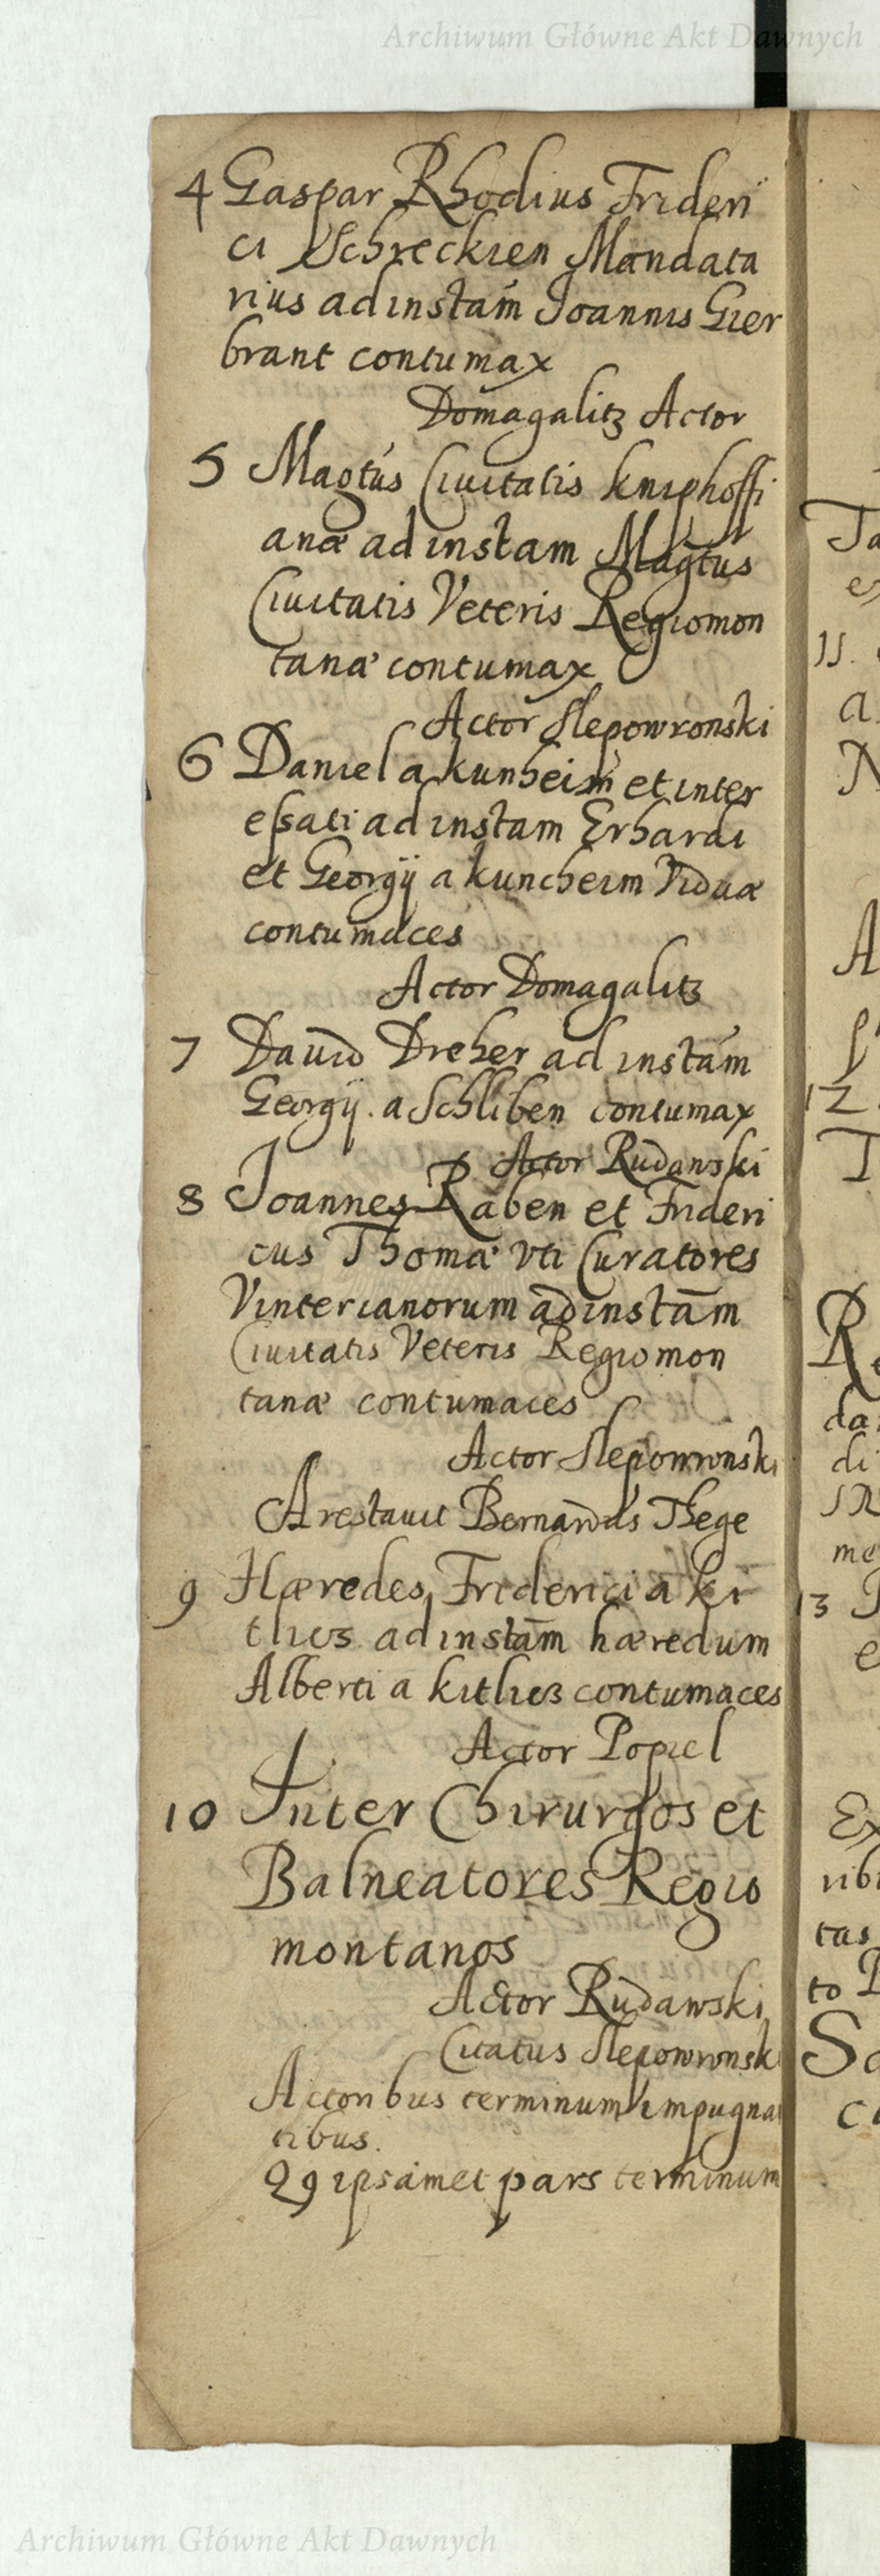 Archiwum Główne Akt Dawnych
4 Gaspar Rhodius Frideri
ci Schreckien Mandata
rius ad instam Joannis Gier
brant contumax
Domagalitz Actor
5 Magtus Ciuitatis kniphoffi
anæ ad instam Magtus
Ciuitatis Veteris Regiomon
tanæ contumax
Actor Slepowronski
6 Daniel a kunheim et inter
essati ad instam Erhardi
et Georgij a kuncheim Viduæ
contumaces
Actor Domagalitz
7 Dauid Dreher ad instam
Georgij a Schliben contumax
Actor Rudawski
8 Joannes Raben et Frideri
cus Thomæ vti Curatores
Vinterianorum ad instam
Ciuitatis Veteris Regiomon
tanæ contumaces
Actor Slepowronski
Arestauit Bernardus Thege
9 Hæredes Friderici a ki
tlicz ad instam hæredum
Alberti a kitlicz contumaces
Actor Popiel
10 Inter Chirurgos et
Balneatores Regio
montanos
Actor Rudawski
Citatus Slepowronsk
Actoribus terminum impugna
tibus.
Q9 ipsamet pars terminum
Ta
11.
a
N
A
12
T
Re
da
di
me
13
e
Ex
ribi
tas
to
Archiwum Główne Akt Dawnych